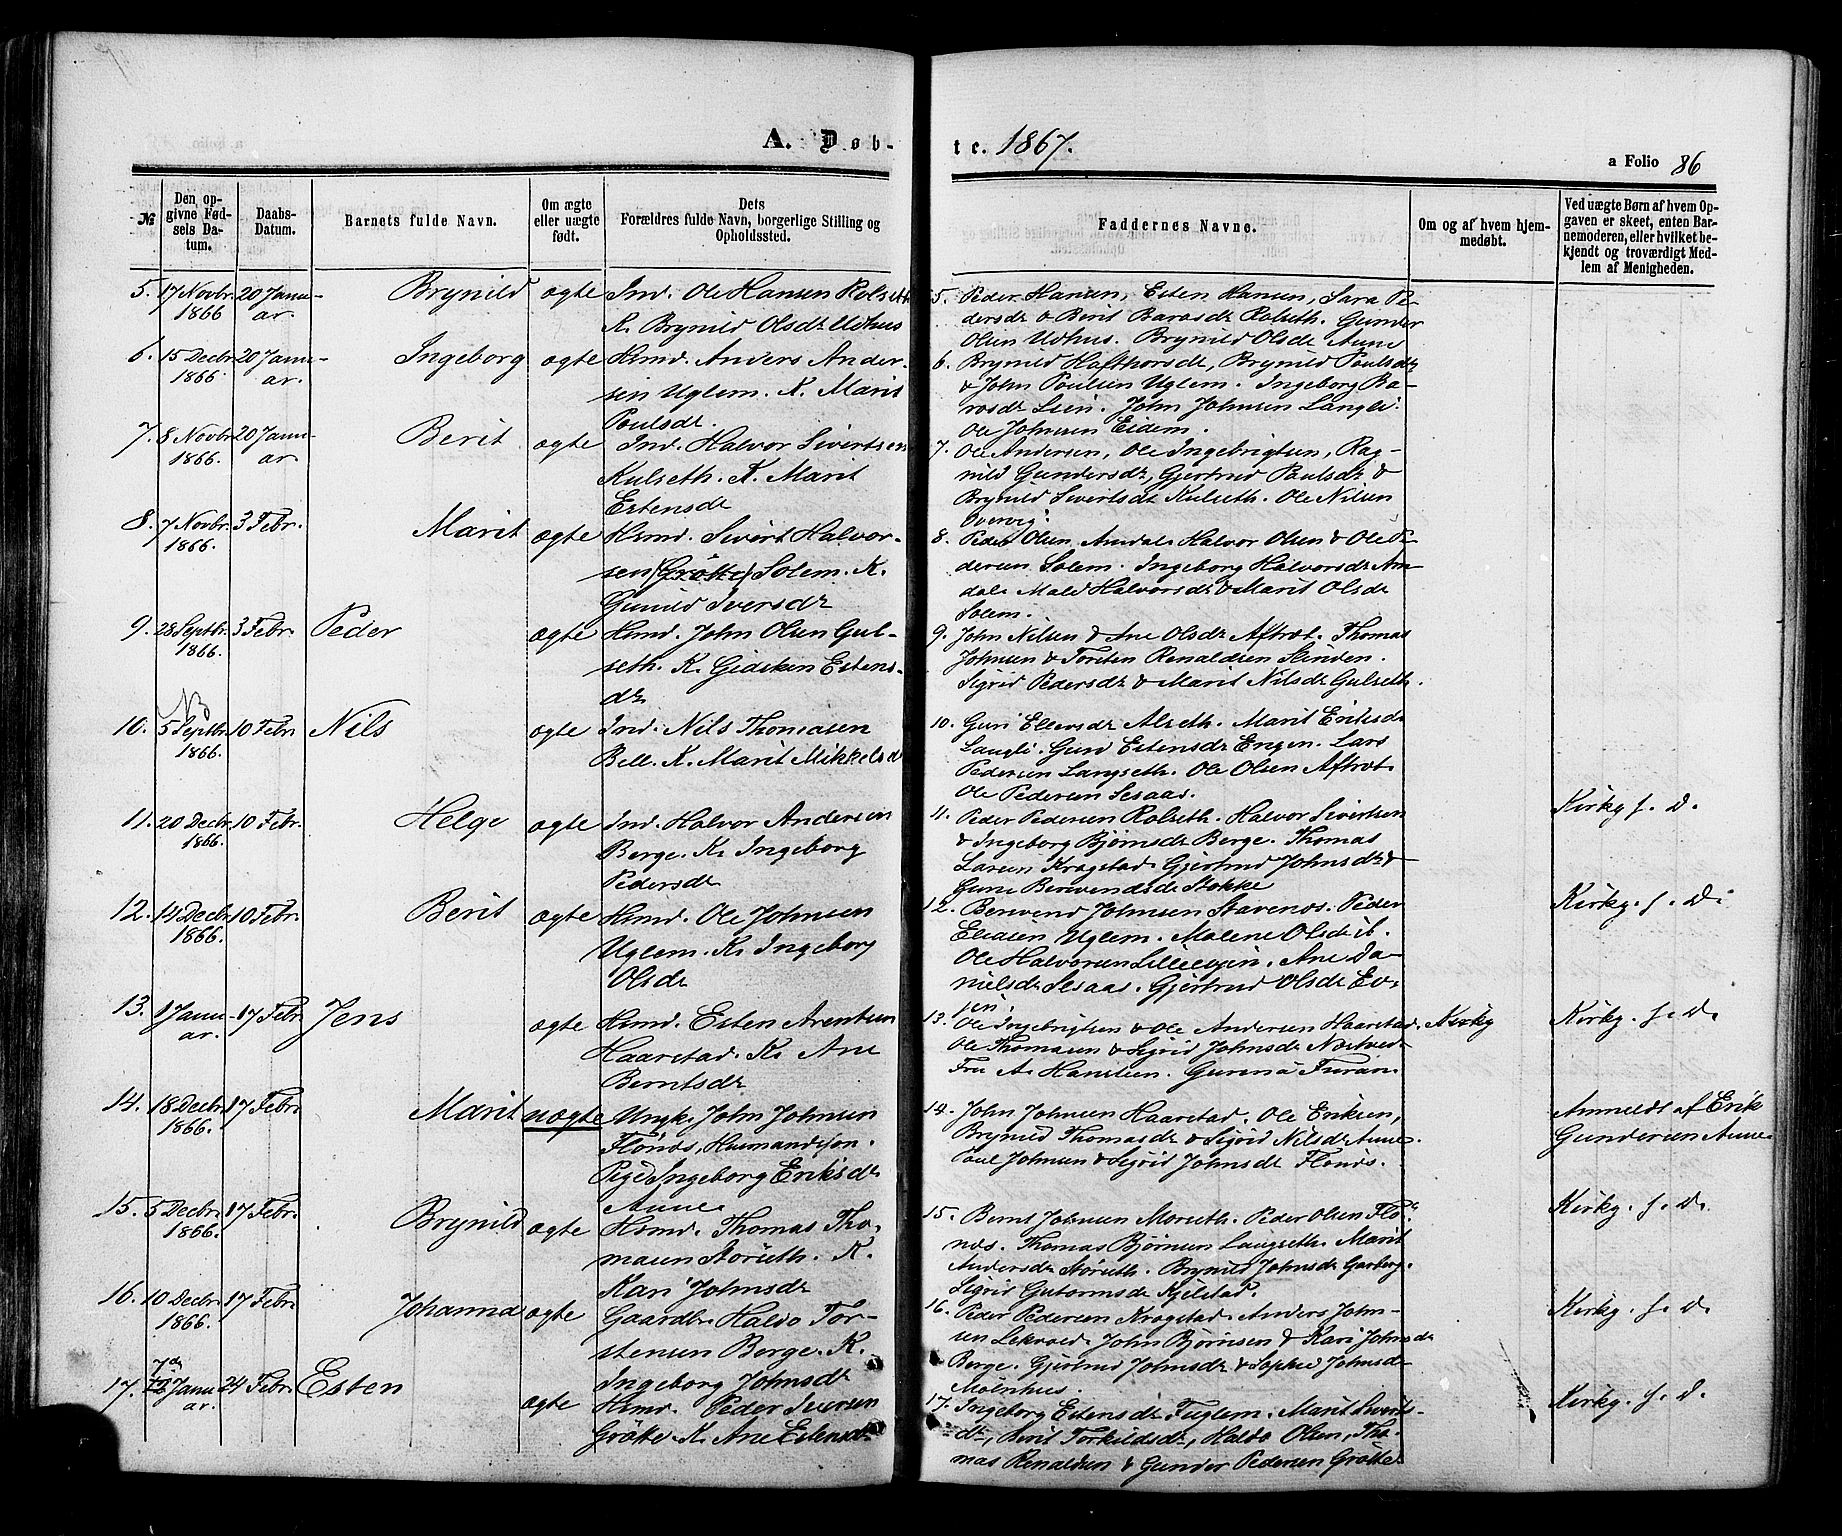 A. Døb-
№
Den op-
givne Fød-
sels Da-
tum.
Daabs-
Datum.
Barnets fulde Navn.
Om ægte
eller uægte
født.
Dets
Forældres fulde Navn, borgerlige Stilling og
Opholdssted.
5. 17 Novbr. 20 Janu- Brynild ægte Ind. Ole Hansen Rolseth
1866 ar K. Brynild Olsdr Udhus
6. 15 Decbr. 20 Janu- Ingeborg ægte Hsmd. Anders Ander-
1866 ar. sen Uglem. K. Marit
Poulsdr.
7. 8 Novbr. 20 Janu- Berit ægte Ind. Halvor Sivertsen
1866. ar. Kulseth. K. Marit
Estensdr
8. 7 Novbr. 3 Febr. Marit ægte Hsmd. Sivert Halvor-
1866. sen (Grøtte) Solem. K.
Gunild Iversdr
9. 28 Septbr. 3 Febr. Peder ægte Hsmd. John Olsen Gul-
1866. seth. K. Gidsken Estens-
dr
NB
10. 5 Septbr. 10 Febr. Nils ægte Ind. Nils Thomasen
1866. Bell. K. Marit Mikkelsd
11. 20 Decbr. 10 Febr. Helge ægte Ind. Halvor Andersen
1866. Berge. K. Ingeborg
Pedersdr
12. 14 Decbr. 10 Febr. Berit ægte Hsmd. Ole Johnsen
1866. Uglem. K. Ingeborg
Olsdr
13. 1 Janu- 17 Febr. Jens ægte Hsmd. Esten Arentsen
ar. Haarstad. K. Ane
Berntsdr
14. 18 Decbr. 17 Febr. Marit uægte Ungk. John Johnsen
1866. Flønæs, Husmandssøn.
Pige Ingeborg Eriksdr
Aune
15. 5 Decbr. 17 Febr. Brynild ægte Hsmd. Thomas Tho-
1866. masen Størseth. K.
Kari Johnsdr
16. 10 Decbr. 17 Febr. Johanna ægte Gaardbr. Haldo Tor-
1866. stensen Berge. K.
Ingeborg Johnsdr
7de
17. Janu- 24 Febr. Esten ægte Hsmd. Peder Iversen
ar. Grøtte K. Ane Estensdr
te. 1867.
a Folio 86
Faddernes Navne.
Om og af hvem hjem-
medøbt.
Ved uægte Børn af hvem Op-
gaven er skeet, enten Bar-
nemoderen, eller hvilket be-
kjendt og troværdigt Med-
lem af Menigheden.
5. Peder Hansen, Esten Hansen, Sara Pe-
dersdr & Berit Barosdr Rolseth. Gunder
Olsen Udhus. Brynild Olsdr Aune
6. Brynild Hafthorsdr, Brynild Poulsdr
& John Poulsen Uglem. Ingeborg Ba-
rosdr Lien. John Johnsen Langli.
Ole Johnsen Eidem.
7. Ole Andersen, Ole Ingebrigtsen, Rag-
nild Gundersdr, Gjertrud Paulsdr &
Brynild Sivertsdr Kulseth. Ole Nilsen
Overvig.
8. Peder Olsen Amdal. Halvor Olsen & Ole Pe-
dersen Solem. Ingeborg Halvorsdr Am-
dal. Mald Halvorsdr & Marit Olsdr
Solem.
9. John Nilsen & Ane Olsdr Aftret. Thomas
Johnsen & Torsten Renaldsen Slinden.
Sigrid Pedersdr & Marit Nilsdr Gulseth.
10. Guri Ellevsdr Alseth. Marit Eriksdr
Langli. Guri Estensdr Engen. Lars
Pedersen Langseth. Ole Olsen Aftret.
Ole Pedersen Sesaas.
11. Peder Pedersen Rolseth. Halvor Sivertsen Kirkg. f. D.
& Ingeborg Bjørnsdr Berge. Thomas
Larsen Kragstad. Gjertrud Johnsdr &
Gune Berevendsdr Stokke
12. Berevend Johnsen Stavenæs. Peder Kirkg. f. D.
Eliasen Uglem. Malene Olsdr ib.
Ole Halvorsen Lilleevjen. Ane Da-
nielsdr Sesaas. Gjertrud Olsdr Ev-
jen.
13. Ole Ingebrigtsen & Ole Andersen Haarstad. Kirkg. f. D.
Ole Thomasen & Sigrid Johnsdr Næstved.
Fru A. Hansteen. Guruna Furan.
14. John Johnsen Haarstad. Ole Eriksen, Anmeldt af Erik
Brynild Thomasdr & Sigrid Nilsdr Aune. Gundersen Aune.
Paul Johnsen & Sigrid Johnsdr Flønæs.
15. Bernt Johnsen Morseth. Peder Olsen Flø- Kirkg. f. D.
næs. Thomas Bjørnsen Langseth. Marit
Andersdr Størseth. Brynild Johnsdr Garberg.
Sigrid Guttormsdr Kjelstad.
16. Peder Pedersen Kragstad. Anders John- Kirkg. f. D.
sen Lekvold. John Bjørnsen & Kari Johnsdr
Berge. Gjertrud Johnsdr & Sophie Johnsdr
Mølnhus.
17. Ingeborg Estensdr Fuglem. Marit Siverts- Kirkg. f. D.
dr, Berit Torkildsdr, Haldo Olsen, Tho-
mas Renaldsen & Gunder Pedersen Grøtte